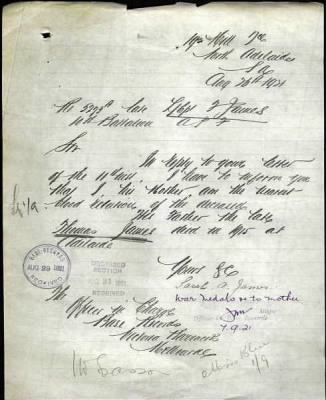 Hill Tce
North Adelaide
S.A.
Aug 26th 1921
Re late Sgt James
Battalion A.I.F
Sir
In reply to your letter
of the inst. I have to inform you
that I, his mother, am the nearest
blood relation of the deceased
His Father the late
Thomas James died in 1915 at
Adelaide
Yours &c
Sarah A. James.
war medals to mother
7.9.21
The
Officer i/c
Base Records
Victoria Barracks
Melbourne
BASE RECORDS
AUG 29 1921
RECEIVED
DECEASED
SECTION
RECEIVED
1/9